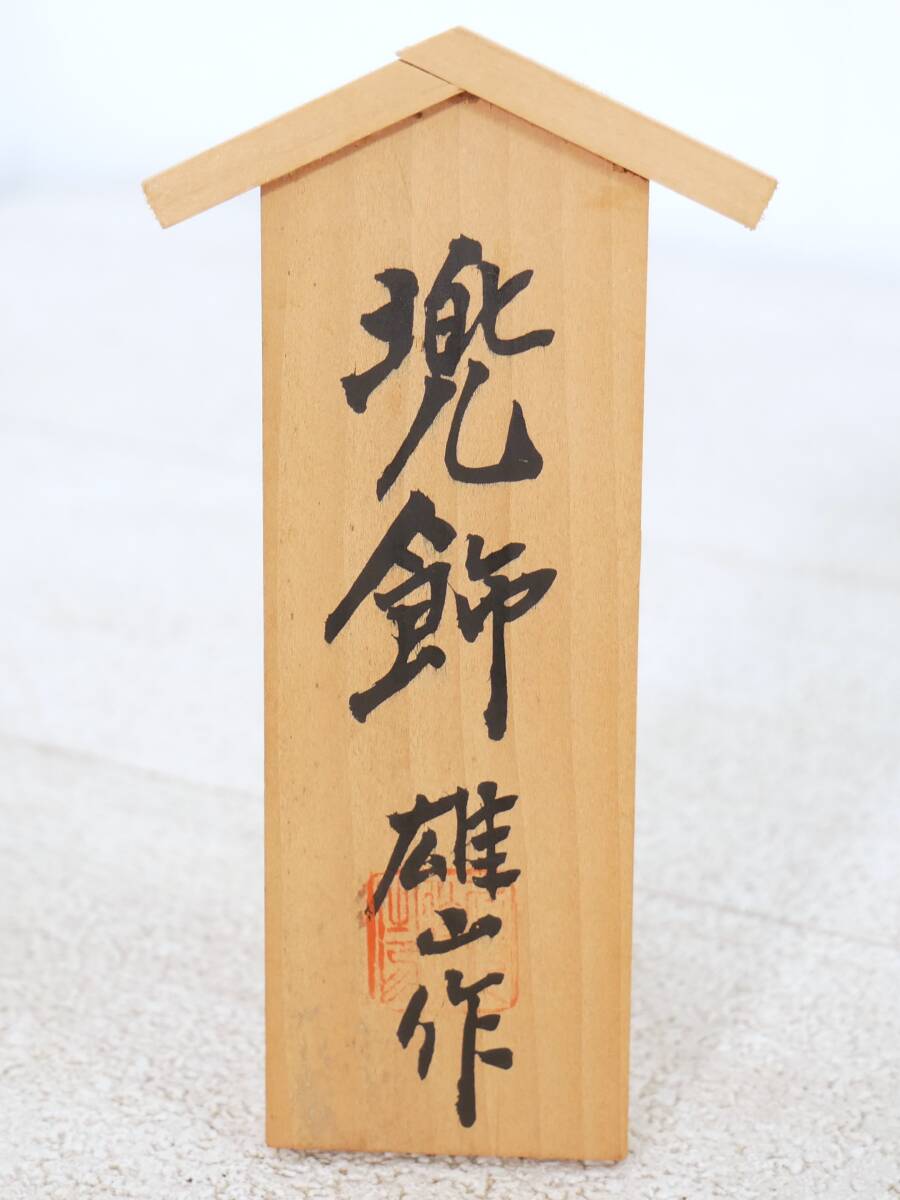 兜飾
雄山作